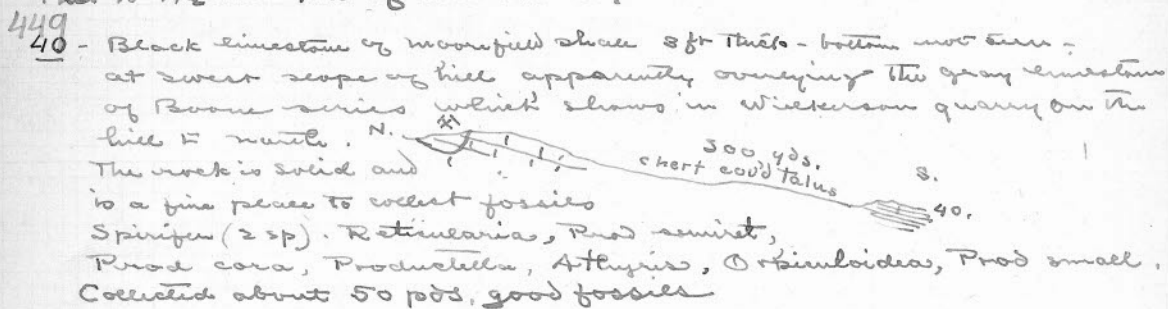 449
40 - Black limestone of Moorefield shale 8 ft thick - bottom not seen -
at sweet slope of hill apparently overlying the gray limestone
of Boone series which shows in Wilkerson quarry on the
hill to north. N.
300 yds.
chert cov'd talus
S.
40.
The rock is solid and
is a fine place to collect fossils
Spirifer (2 sp). Reticularia, Prod semiret,
Prod cora, Productella, Athyris, Orbiculoidea, Prod small.
Collected about 50 pds. good fossils